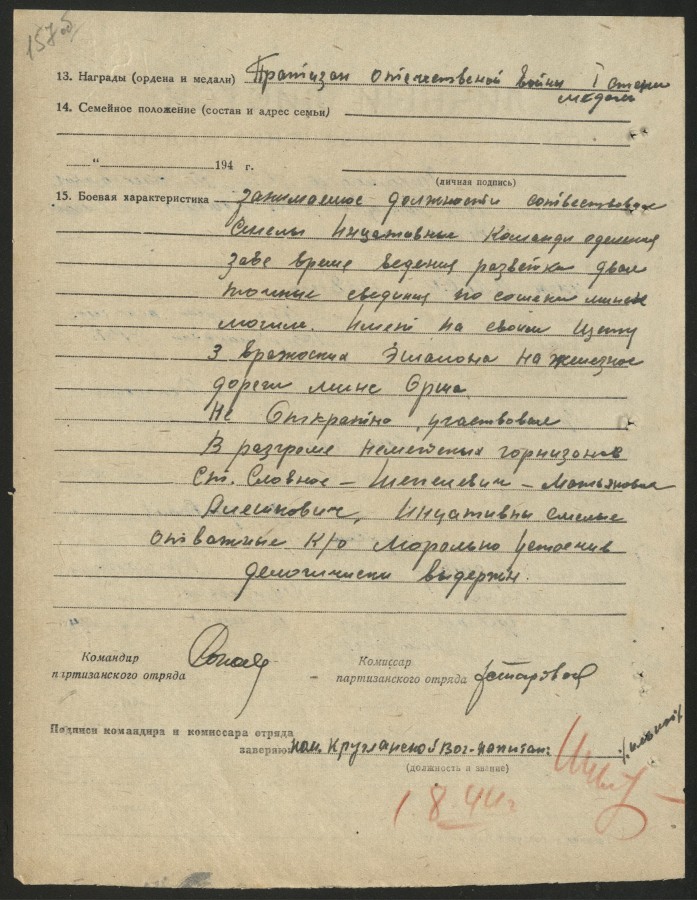 157 об
13. Награды (ордена и медали) Пратизан отечественой войны I степен
медаль
14. Семейное положение (состав и адрес семьи)
„ “ 194 г.
(личная подпись)
15. Боевая характеристика занимаемое должности сотвествовал
Смелы Инцативные Команди оделения
заве время ведения разветки двал
точные сведения по сошени минске
могили. Имет на своем щету
3 вражоских Эшалона на железное
дороги минс Орша
Не Откратно участвовал
В разгроме неметских горнизонов
Ст. Славное – Шепелевич –
Инцативны смелые
отважные к/о Морально
выдержн.
Командир
партизанского отряда
Комиссар
партизанского отряда
Подписи командира и комиссара отряда
заверяю: нач. Круглянской Вог-капитан:
(должность и звание)
1.8.44 г